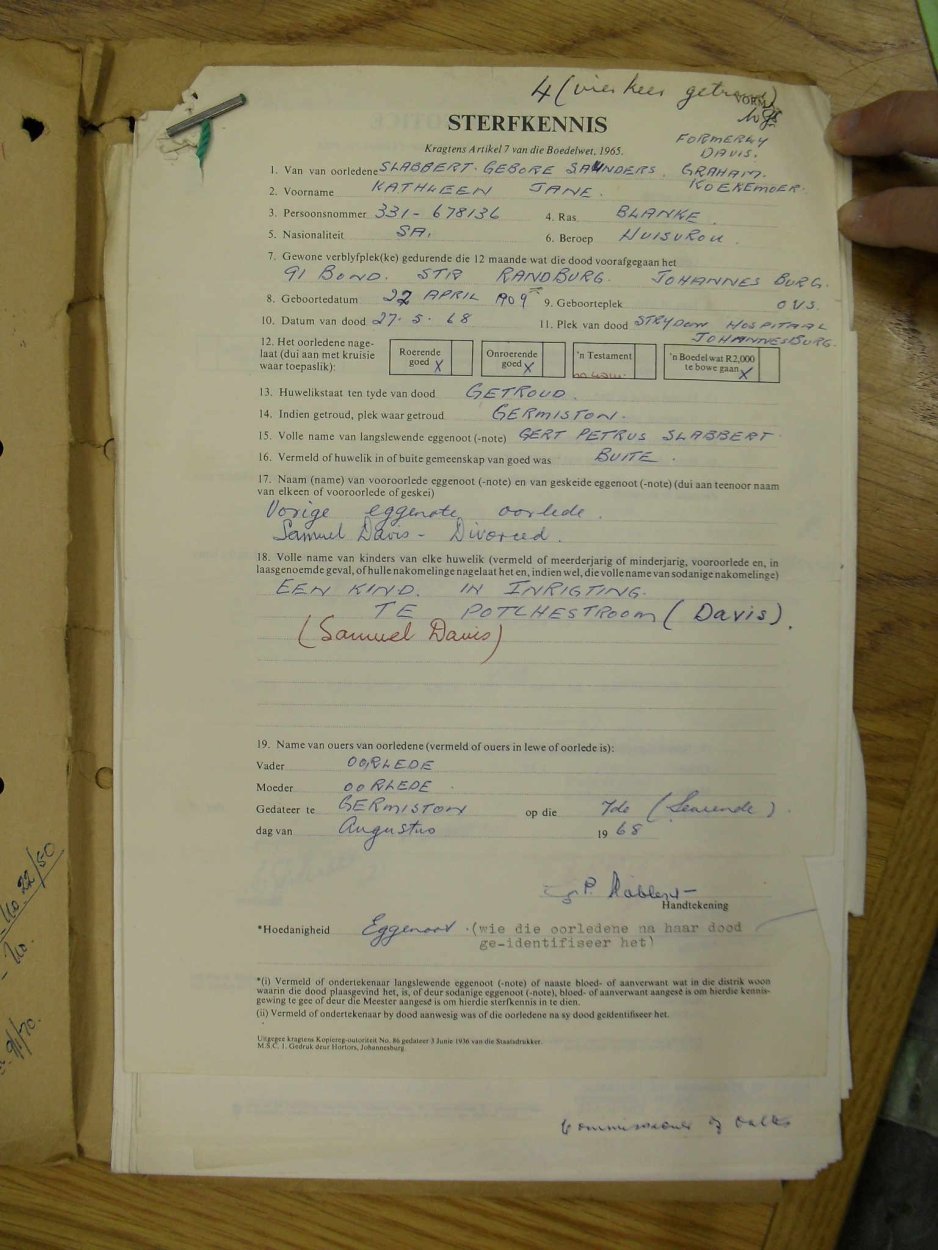 4 (vier keer getroud)
VORM
STERFKENNIS
Kragtens Artikel 7 van die Boedelwet, 1965.
FORMERLY
DAVIS.
1. Van van oorledene SLABBERT. GEBORE SAUNDERS. GRAHAM.
KOEKEMOER.
2. Voorname KATHLEEN JANE.
3. Persoonsnommer 331-678136 4. Ras BLANKE.
5. Nasionaliteit SA. 6. Beroep HUISVROU.
7. Gewone verblyfplek(ke) gedurende die 12 maande wat die dood voorafgegaan het
91 BOND. STR RANDBURG. JOHANNESBURG.
8. Geboortedatum 27 APRIL 1909 9. Geboorteplek O.V.S.
10. Datum van dood 27.5.68 11. Plek van dood STRYDOM HOSPITAAL
JOHANNESBURG.
12. Het oorledene nage-
laat (dui aan met kruisie
waar toepaslik):
Roerende
goed X
Onroerende
goed X
'n Testament
'n Boedel wat R2,000
te bowe gaan X
13. Huwelikstaat ten tyde van dood GETROUD.
14. Indien getroud, plek waar getroud GERMISTON.
15. Volle name van langslewende eggenoot (-note) GERT PETRUS SLABBERT
16. Vermeld of huwelik in of buite gemeenskap van goed was BUITE.
17. Naam (name) van vooroorlede eggenoot (-note) en van geskeide eggenoot (-note) (dui aan teenoor naam
van elkeen of vooroorlede of geskei)
Vorige eggenote oorlede.
Samuel Davis - Divorced.
18. Volle name van kinders van elke huwelik (vermeld of meerderjarig of minderjarig, vooroorlede en, in
laasgenoemde geval, of hulle nakomelinge nagelaat het en, indien wel, die volle name van sodanige nakomelinge)
EEN KIND. IN INRIGTING.
TE POTCHESTROOM (Davis).
(Samuel Davis)
19. Name van ouers van oorledene (vermeld of ouers in lewe of oorlede is):
Vader OORLEDE
Moeder OORLEDE
Gedateer te GERMISTON op die 7de (Sewende)
dag van Augustus 1968
Handtekening
*Hoedanigheid Eggenoot. (wie die oorledene na haar dood
ge-identifiseer het)
*(i) Vermeld of ondertekenaar langslewende eggenoot (-note) of naaste bloed- of aanverwant wat in die distrik woon
waarin die dood plaasgevind het, is, of deur sodanige eggenoot (-note), bloed- of aanverwant aangesê is om hierdie kennis-
gewing te gee of deur die Meester aangesê is om hierdie sterfkennis in te dien.
(ii) Vermeld of ondertekenaar by dood aanwesig was of die oorledene na sy dood geïdentifiseer het.
Uitgegee kragtens Kopiereg-outoriteit No. 86 gedateer 3 Junie 1936 van die Staatsdrukker.
M.S.C. 1. Gedruk deur Hortors, Johannesburg.
Commissioner of Oaths
22/50
9/1/70.